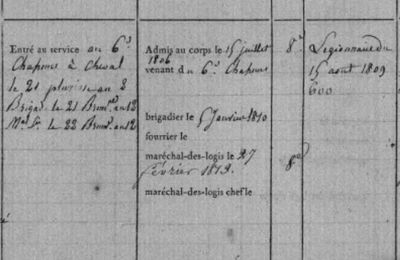 Entré au service au 6e
Chasseurs à Cheval
le 21 pluviose an 2
Brigad. le 21 Brum. an 12
Mal. le 22 Brum. an 12
Admis au corps le 15 juillet
1806
venant du 6e Chasseurs
brigadier le 5 Janvier 1810
fourrier le
maréchal-des-logis le 27
février 1813.
maréchal-des-logis chef le
8e
8e
Légionnaire du
15 aout 1809
600